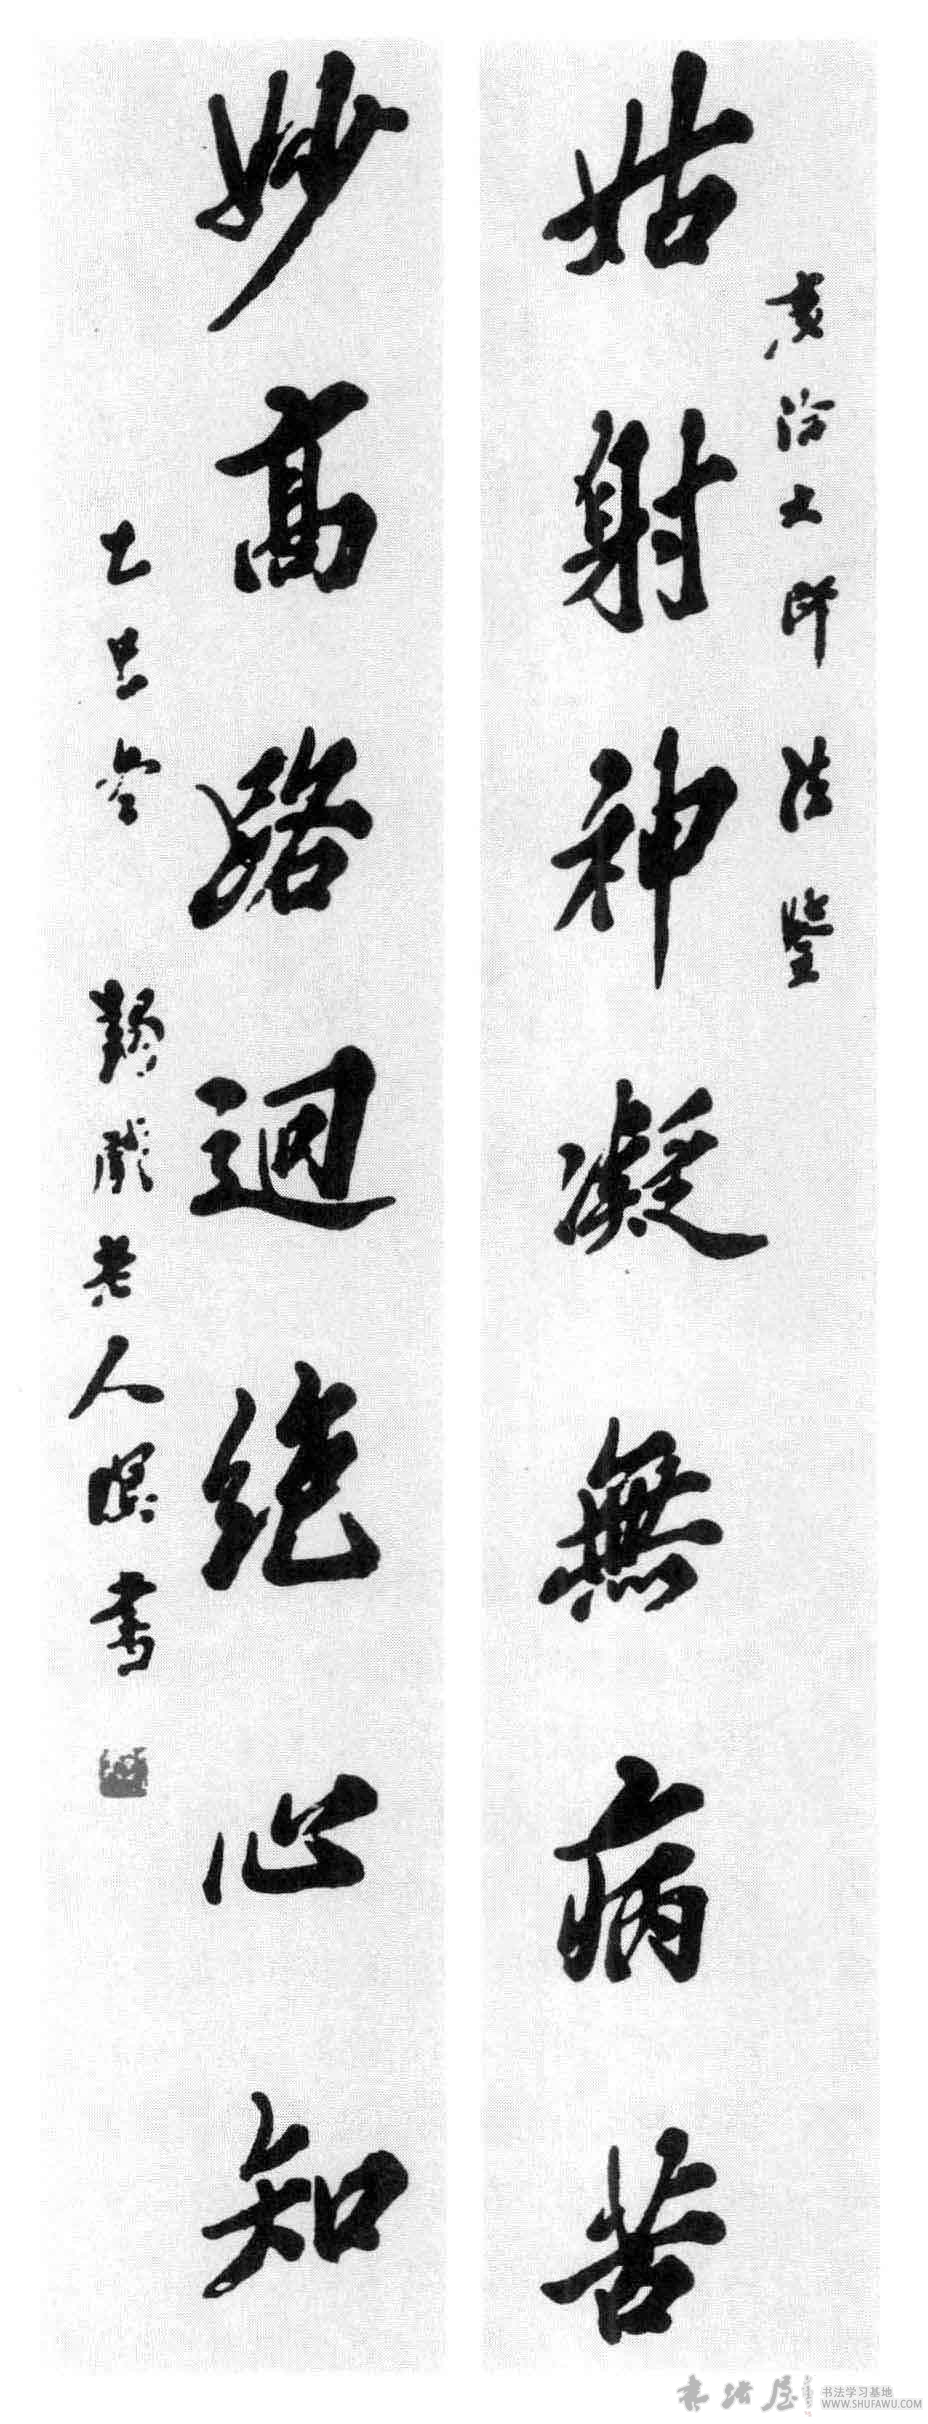 姑射神凝無病苦
大師法鑒
妙高路迥絕心知
乙丑冬
老人 書
书法屋
书法学习基地
WWW.SHUFAWU.COM